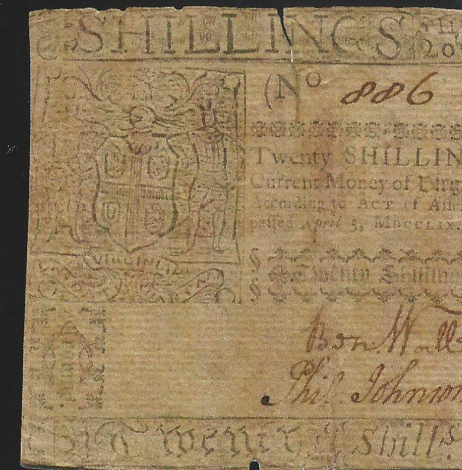 SHILLINGS
20
(No 886
Twenty SHILLIN
Current Money of Virg
According to ACT of Asse
passed April 5, MDCCLIX.
Twenty Shilling
Ben Wall
Phil Johnson
Twenty Shills